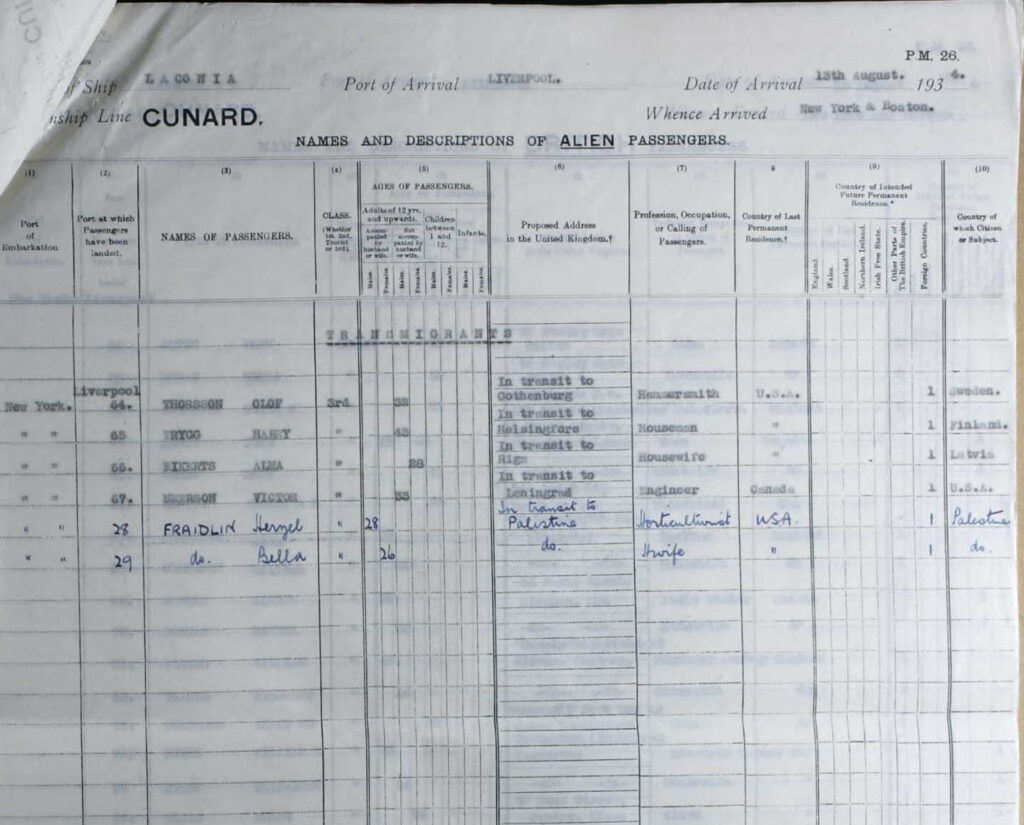 P.M. 26.
of Ship LACONIA Port of Arrival LIVERPOOL. Date of Arrival 13th August. 1934.
nship Line CUNARD. Whence Arrived New York & Boston.
NAMES AND DESCRIPTIONS OF ALIEN PASSENGERS.
(1) (2) (3) (4) (5) (6) (7) 8 (9) (10)
Port of Embarkation.
Port at which Passengers have been landed.
NAMES OF PASSENGERS.
CLASS. (Whether 1st, 2nd, Tourist or 3rd.)
AGES OF PASSENGERS.
Adults of 12 yrs. and upwards.
Accompanied by husband or wife.
Not accompanied by husband or wife.
Children between 1 and 12.
Infants.
Males. Females. Males. Females. Males. Females. Males. Females.
Proposed Address in the United Kingdom.†
Profession, Occupation, or Calling of Passengers.
Country of Last Permanent Residence.†
Country of Intended Future Permanent Residence.*
England. Wales. Scotland. Northern Ireland. Irish Free State. Other Parts of The British Empire. Foreign Countries.
Country of which Citizen or Subject.
TRANSMIGRANTS
Liverpool In transit to
New York. 64. THORSSON OLOF 3rd 32 Gothenburg Hammersmith U.S.A. 1 Sweden.
In transit to
" " 65 TRYGG HARRY " 43 Helsingfors Houseman " 1 Finland.
In transit to
" " 66. ALMA " 28 Riga Housewife " 1 Latvia
In transit to
" " 67. VICTOR " 53 Leningrad Engineer Canada 1 U.S.A.
In transit to
" " 28 FRAIDLIN Herzel " 28 Palestine Horticulturist USA. 1 Palestine
" " 29 do. Bella " 26 do. Hwife " 1 do.